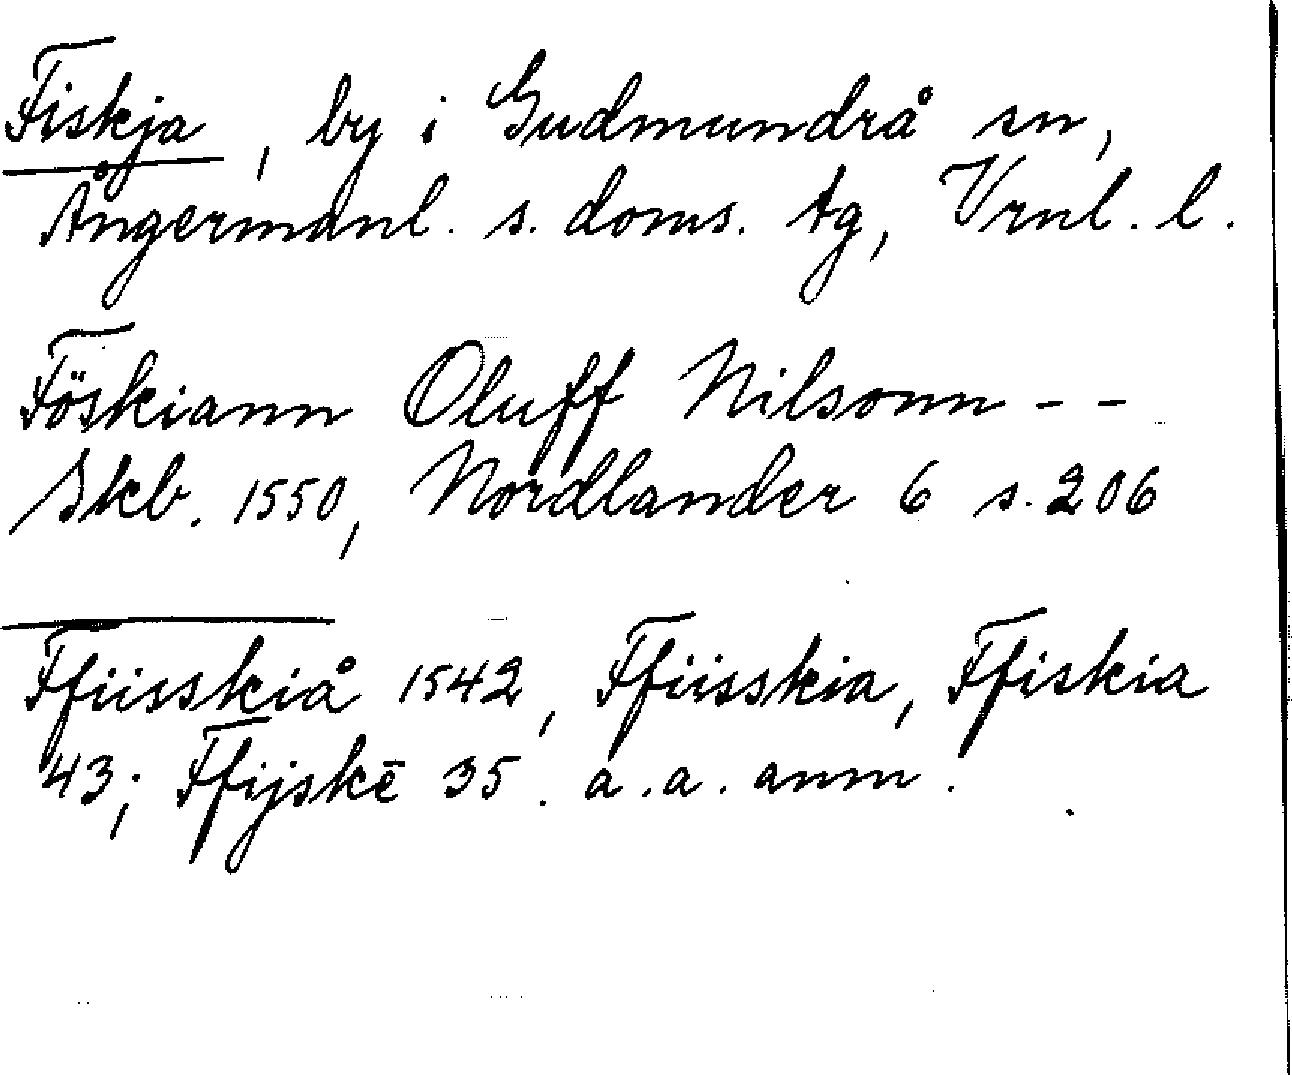 Fiskja, by i Gudmundrå sn,
Ångermanl. s. doms. tg, Vrnl. l.
Föskiann Oluff Nilsonn - -
Skb. 1550, Nordlander 6 s. 206
Ffiisskiå 1542, Ffiisskia, Ffiskia
43; Ffijskē 35. a.a. anm.